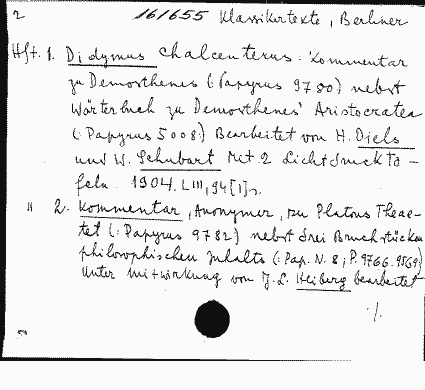 2 161655 Klassikertexte, Berliner
Hft. 1. Didymus Chalcenterus: Kommentar
zu Demosthenes (:Papyrus 9780) nebst
Wörterbuch zu Demosthenes' Aristocratea
(:Papyrus 5008:) Bearbeitet von H. Diels
und W. Schubart Mit 2 Lichtdruckta-
feln. 1904. LIII, 94 [1] s.
" 2. Kommentar, Anonymer, zu Platons Theae-
tet (:Papyrus 9782) nebst drei Bruchstücken
philosophischen Inhalts (:Pap. N. 8; P. 9766. 9569)
Unter Mitwirkung von J. L. Heiberg bearbeitet
./.